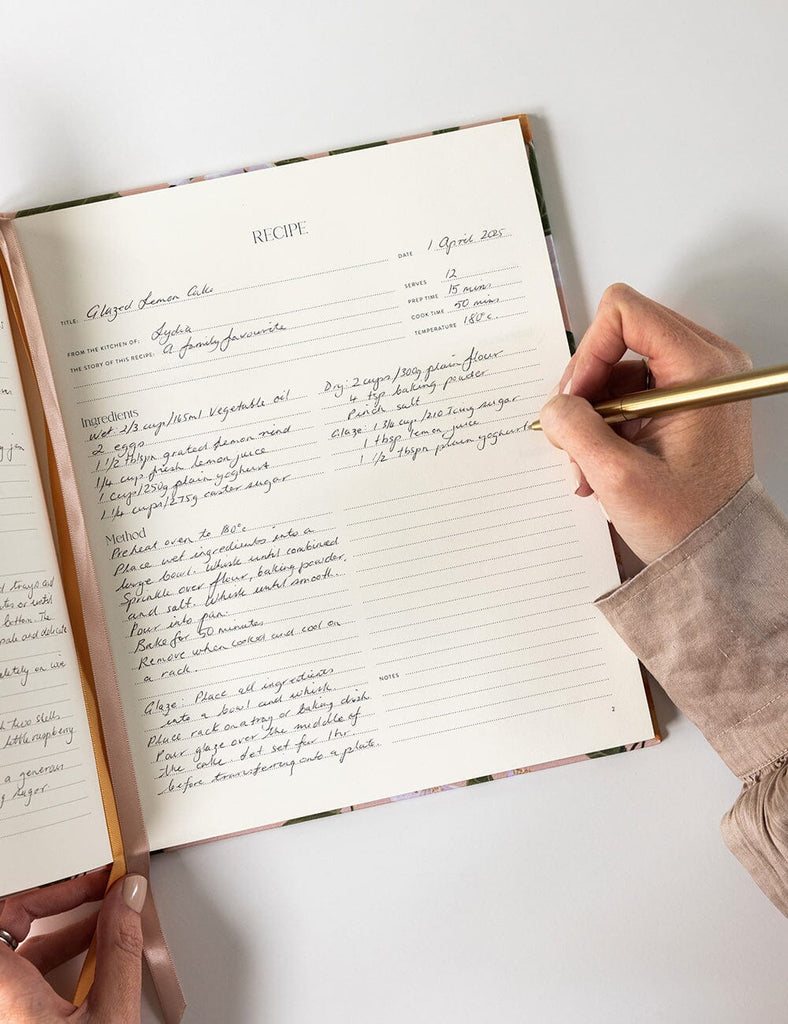 RECIPE
DATE 1 April 2025
TITLE: Glazed Lemon Cake
SERVES 12
PREP TIME 15 mins
COOK TIME 50 mins
TEMPERATURE 180°c
FROM THE KITCHEN OF: Lydia
THE STORY OF THIS RECIPE: A family favourite
Ingredients
Wet: 2/3 cup/165ml Vegetable oil
2 eggs
1 1/2 tblspn grated lemon rind
1/4 cup fresh lemon juice
1 cup/250g plain yoghurt
1 1/4 cups/275g caster sugar
Dry: 2 cups/300g plain flour
4 tsp baking powder
Pinch salt
Glaze: 1 3/4 cup/210 Icing sugar
1 tbsp lemon juice
1 1/2 tbspn plain yoghurt
Method
Preheat oven to 180°c
Place wet ingredients into a
large bowl. Whisk until combined
Sprinkle over flour, baking powder,
and salt. Whisk until smooth.
Pour into pan.
Bake for 50 minutes
Remove when cooked and cool on
a rack.
Glaze: Place all ingredients
into a bowl and whisk
Place rack on a tray or baking dish
Pour glaze over the middle of
the cake. Let set for 1hr
before transferring onto a plate.
NOTES
2
jam
trays and
or until
bottom. The
pale and delicate
completely on wire
two shells
little raspberry
a generous
sugar